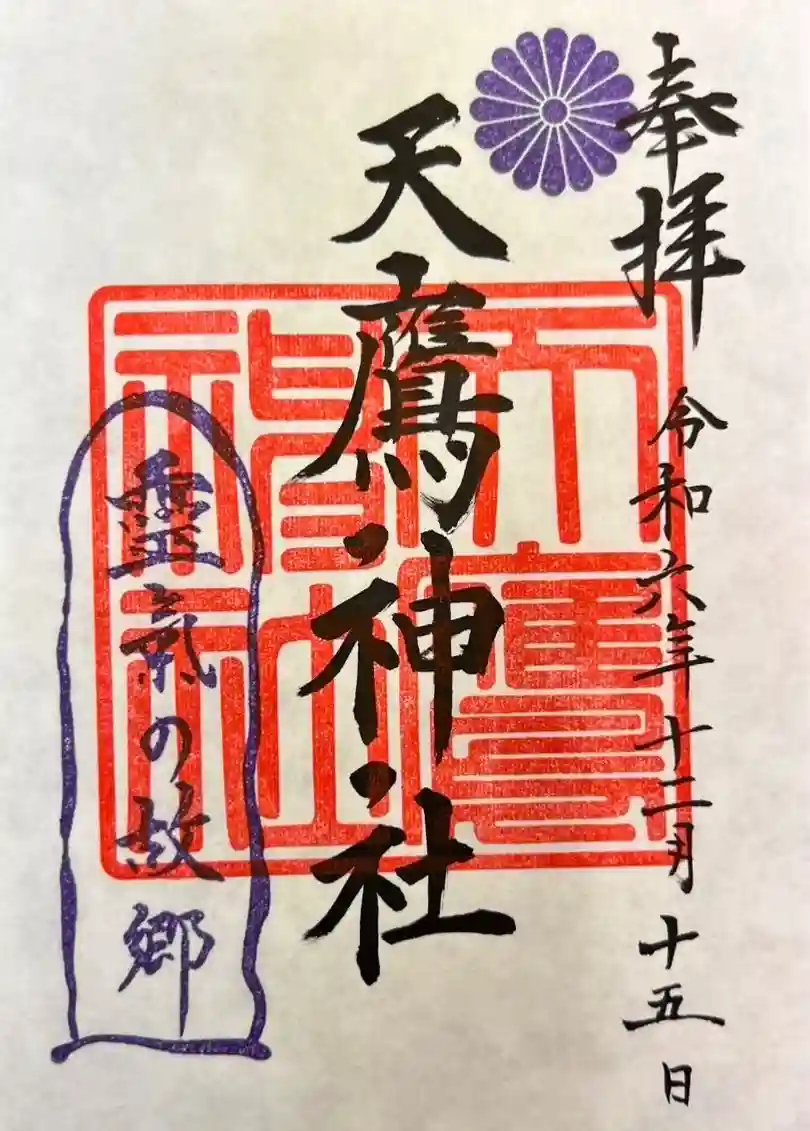 奉拝
令和六年十二月十五日
天鷹神社
天鷹神社
靈氣の故郷